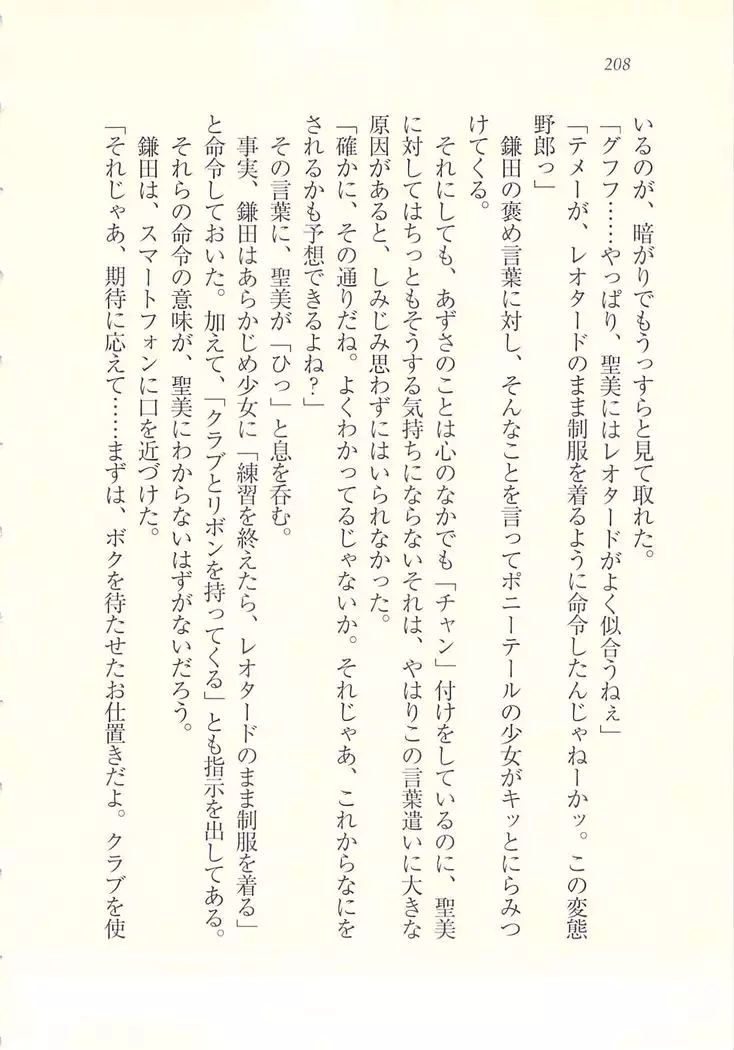 208
いるのが、暗がりでもうっすらと見て取れた。
「グフフ……やっぱり、聖美にはレオタードがよく似合うねぇ」
「テメーが、レオタードのまま制服を着るように命令したんじゃねーかッ。この変態
野郎っ」
鎌田の褒め言葉に対し、そんなことを言ってポニーテールの少女がキッとにらみつ
けてくる。
それにしても、あずさのことは心のなかでも「チャン」付けをしているのに、聖美
に対してはちっともそうする気持ちにならないそれは、やはりこの言葉遣いに大きな
原因があると、しみじみ思わずにはいられなかった。
「確かに、その通りだね。よくわかってるじゃないか。それじゃあ、これからなにを
されるかも予想できるよね?」
その言葉に、聖美が「ひっ」と息を呑む。
事実、鎌田はあらかじめ少女に「練習を終えたら、レオタードのまま制服を着る」
と命令しておいた。加えて、「クラブとリボンを持ってくる」とも指示を出してある。
それらの命令の意味が、聖美にわからないはずがないだろう。
鎌田は、スマートフォンに口を近づけた。
「それじゃあ、期待に応えて……まずは、ボクを待たせたお仕置きだよ。クラブを使